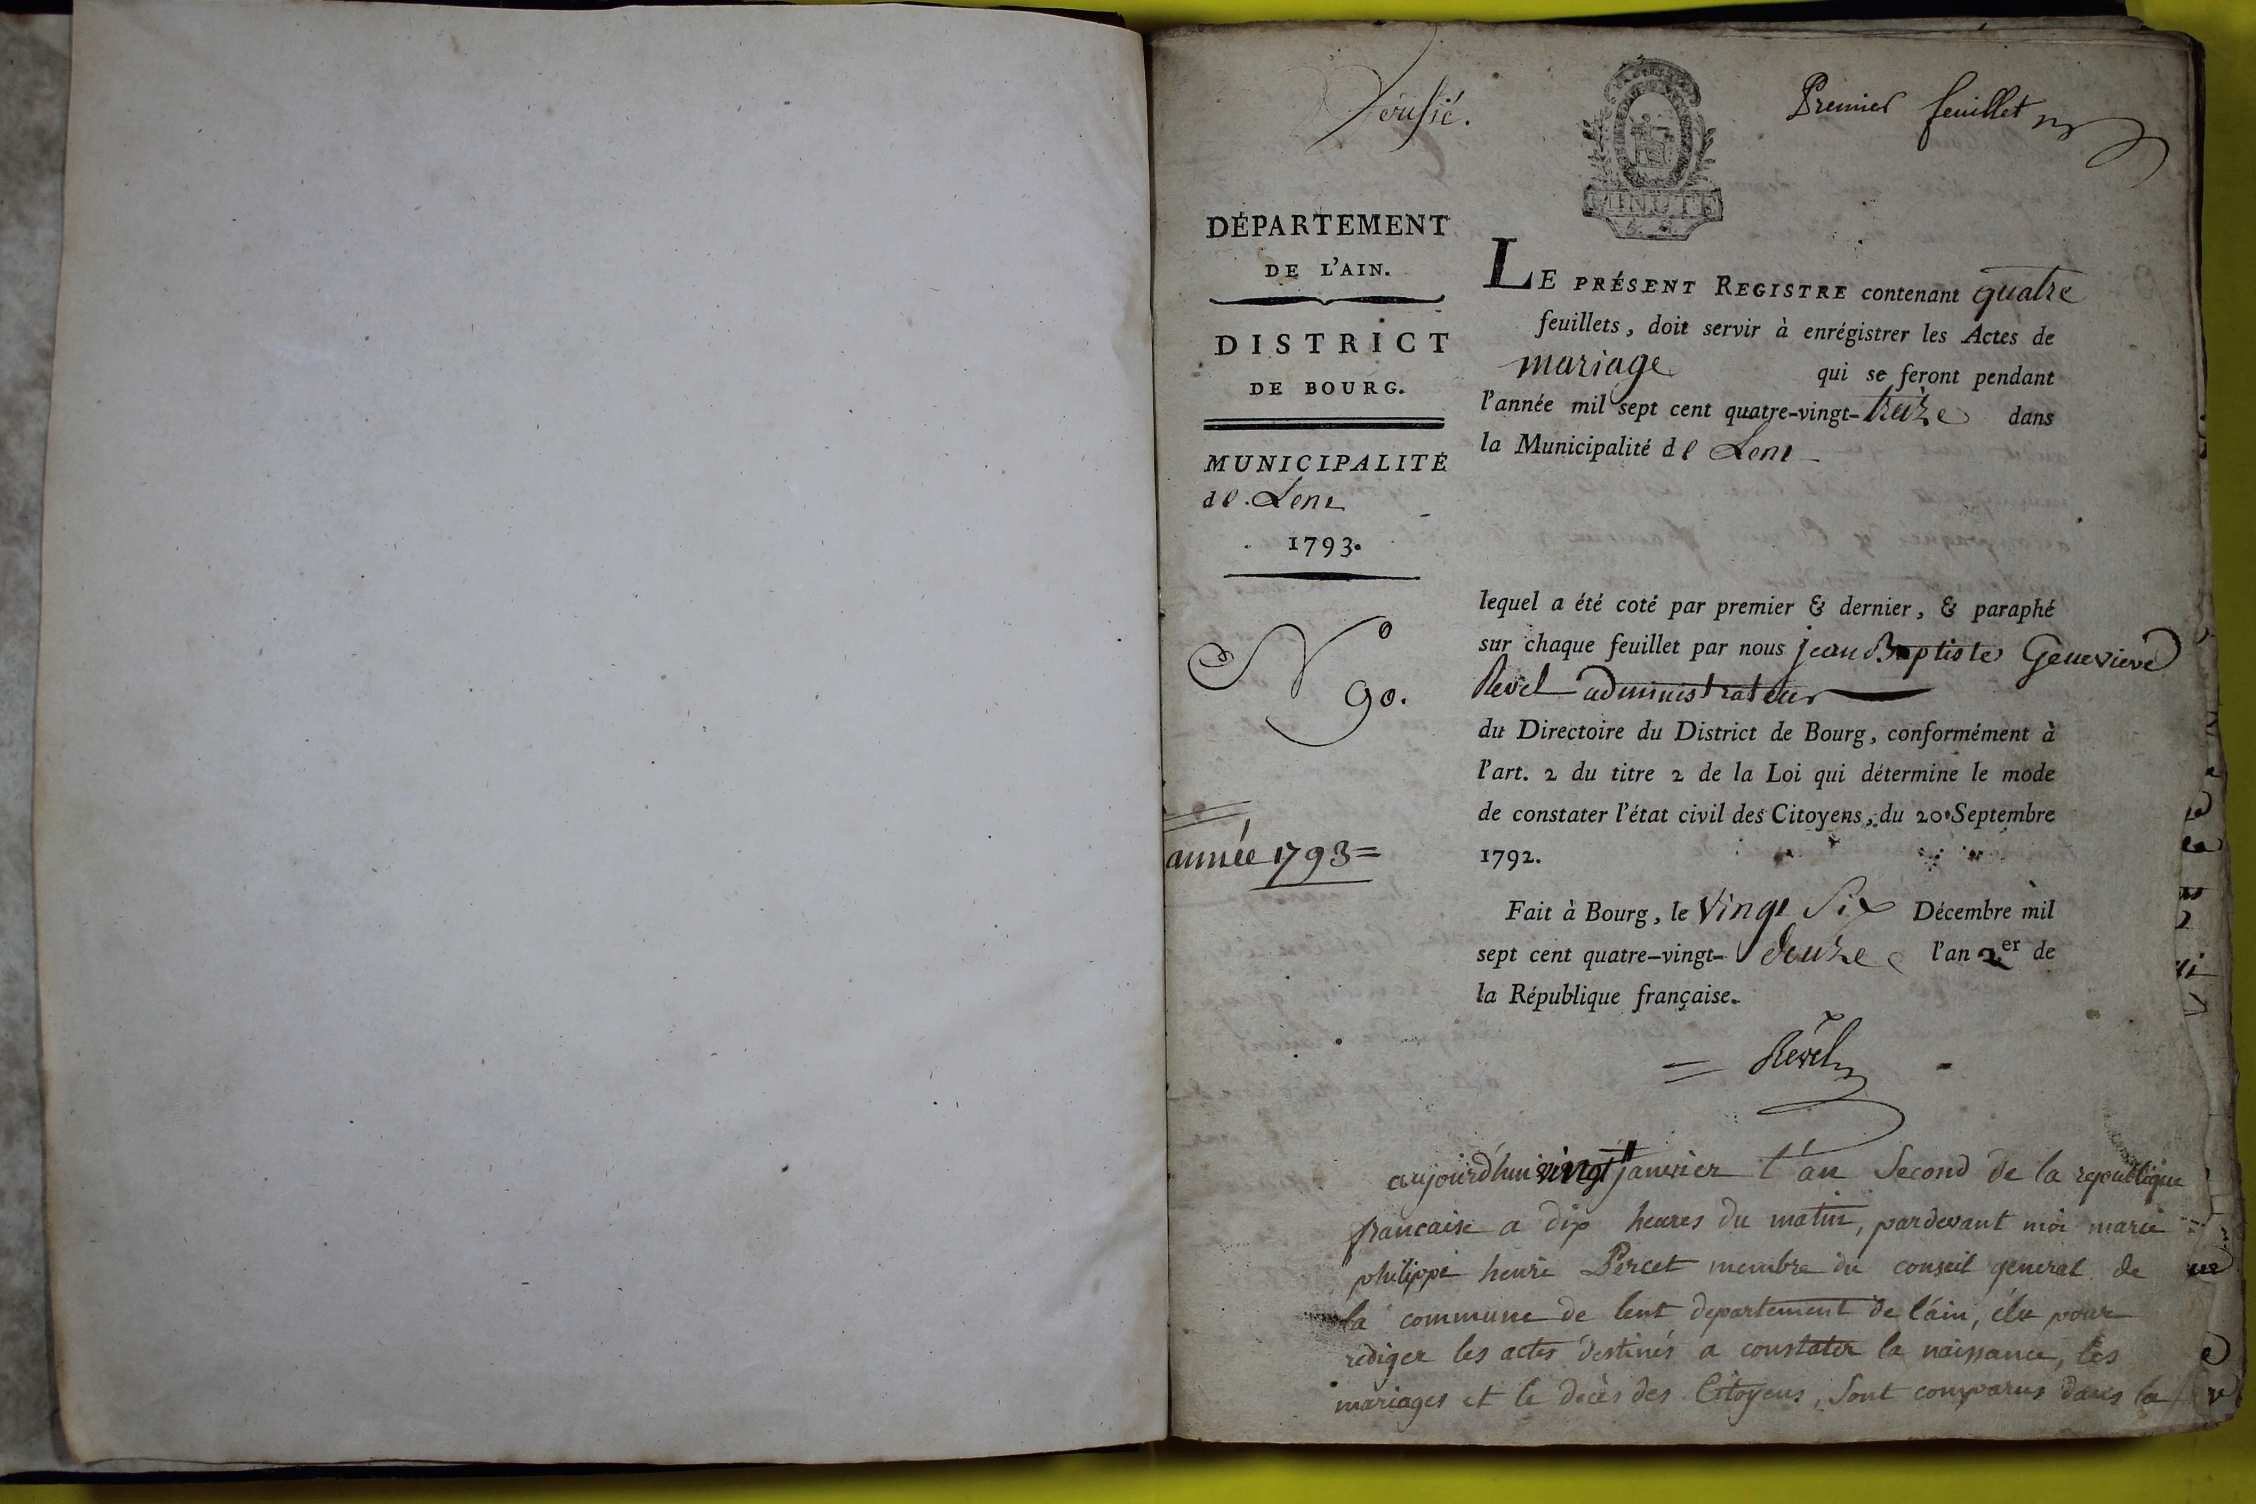 Vérifié.
Premier feuillet
MINUTE
DÉPARTEMENT
DE L'AIN.
DISTRICT
DE BOURG.
MUNICIPALITÉ
de Lent
1793.
N° 90.
année 1793=
LE PRÉSENT REGISTRE contenant quatre
feuillets, doit servir à enrégistrer les Actes de
mariage qui se feront pendant
l'année mil sept cent quatre-vingt-treize dans
la Municipalité de Lent
lequel a été coté par premier & dernier, & paraphé
sur chaque feuillet par nous jean Baptiste Genevieve
Revel administrateur
du Directoire du District de Bourg, conformément à
l'art. 2 du titre 2 de la Loi qui détermine le mode
de constater l'état civil des Citoyens, du 20 Septembre
1792.
Fait à Bourg, le vingt Six Décembre mil
sept cent quatre-vingt-douze l'an 2er de
la République française.
= Revel
aujourd'hui vingt janvier l'an Second de la republique
francaise a dix heures du matin, pardevant moi marie
philippe henri Percet membre du conseil general de
la commune de lent departement de l'ain, élu pour
rediger les actes destinés a constater la naissance, les
mariages et le decès des Citoyens, Sont comparus dans la